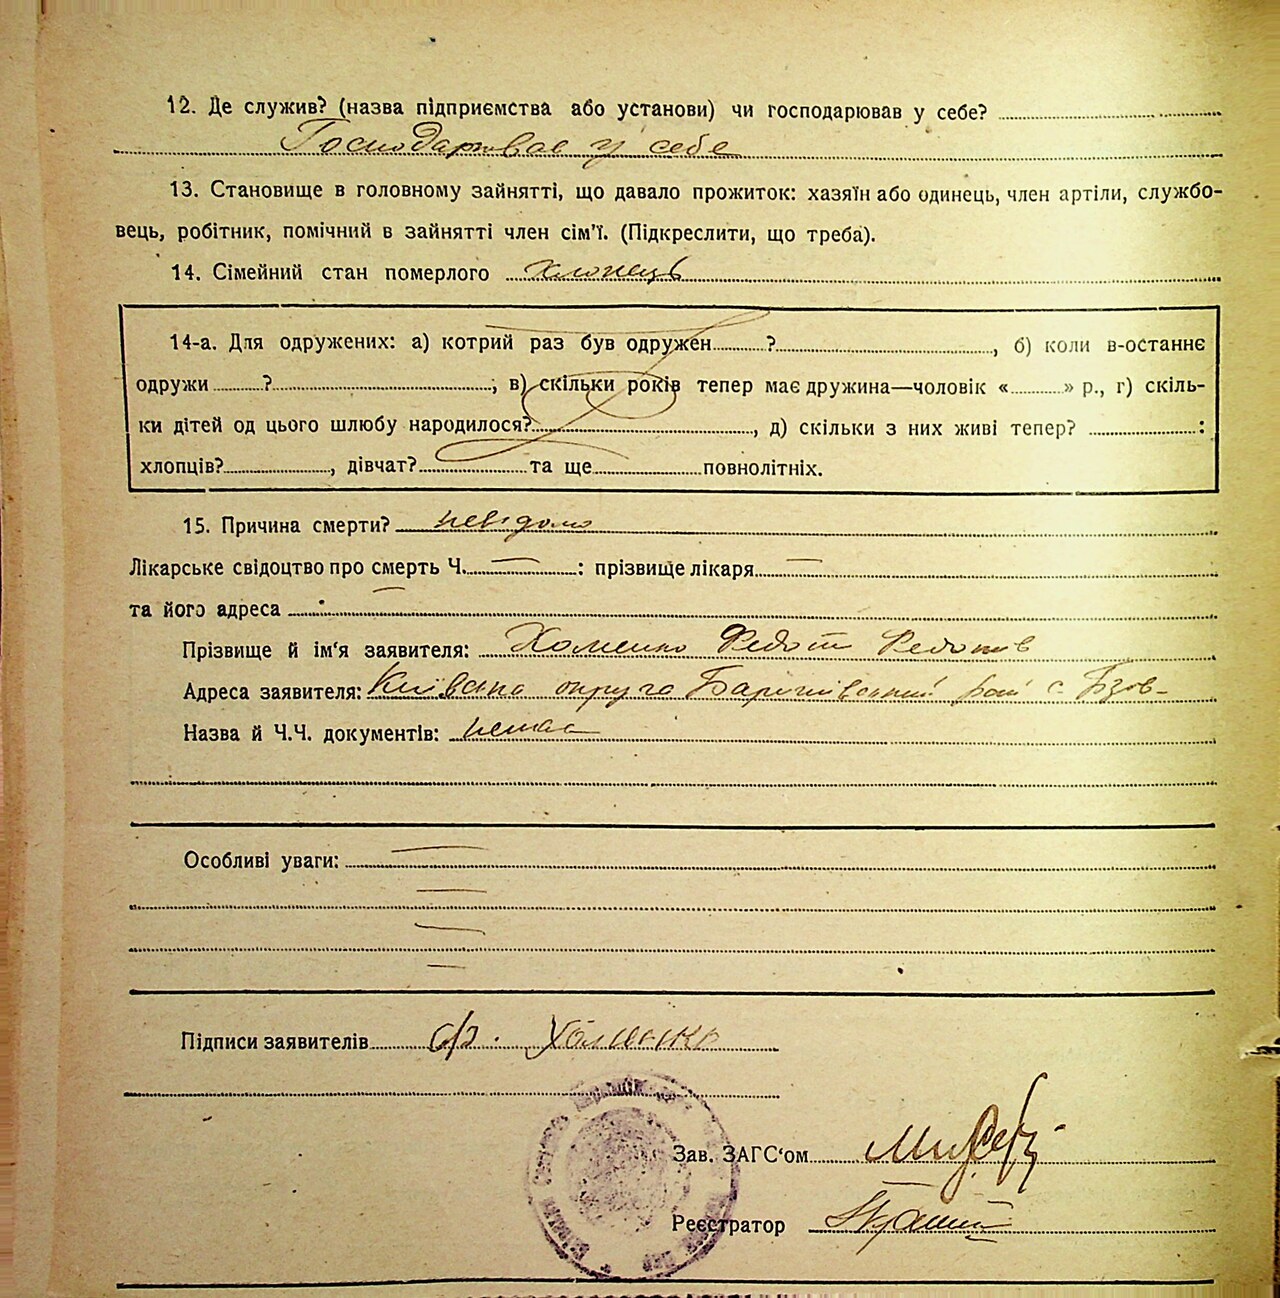 12. Де служив? (назва підприємства або установи) чи господарював у себе?
Господарював у себе
13. Становище в головному зайнятті, що давало прожиток: хазяїн або одинець, член артіли, службо-
вець, робітник, помічний в зайнятті член сім'ї. (Підкреслити, що треба).
14. Сімейний стан померлого хлопець
14-а. Для одружених: а) котрий раз був одружен ?, б) коли в-останнє
одружи ?; в) скільки років тепер має дружина—чоловік « » р., г) скіль-
ки дітей од цього шлюбу народилося?, д) скільки з них живі тепер? :
хлопців?, дівчат? та ще повнолітніх.
15. Причина смерти? невідомо
Лікарське свідоцтво про смерть Ч. — : прізвище лікаря —
та його адреса —
Прізвище й ім'я заявителя: Хоменко Федот Федотів
Адреса заявителя: Київська округа Баришівський рай с.
Назва й Ч.Ч. документів: немає
Особливі уваги: —
—
—
—
Підписи заявителів Хоменко
Зав. ЗАГС'ом
Реєстратор